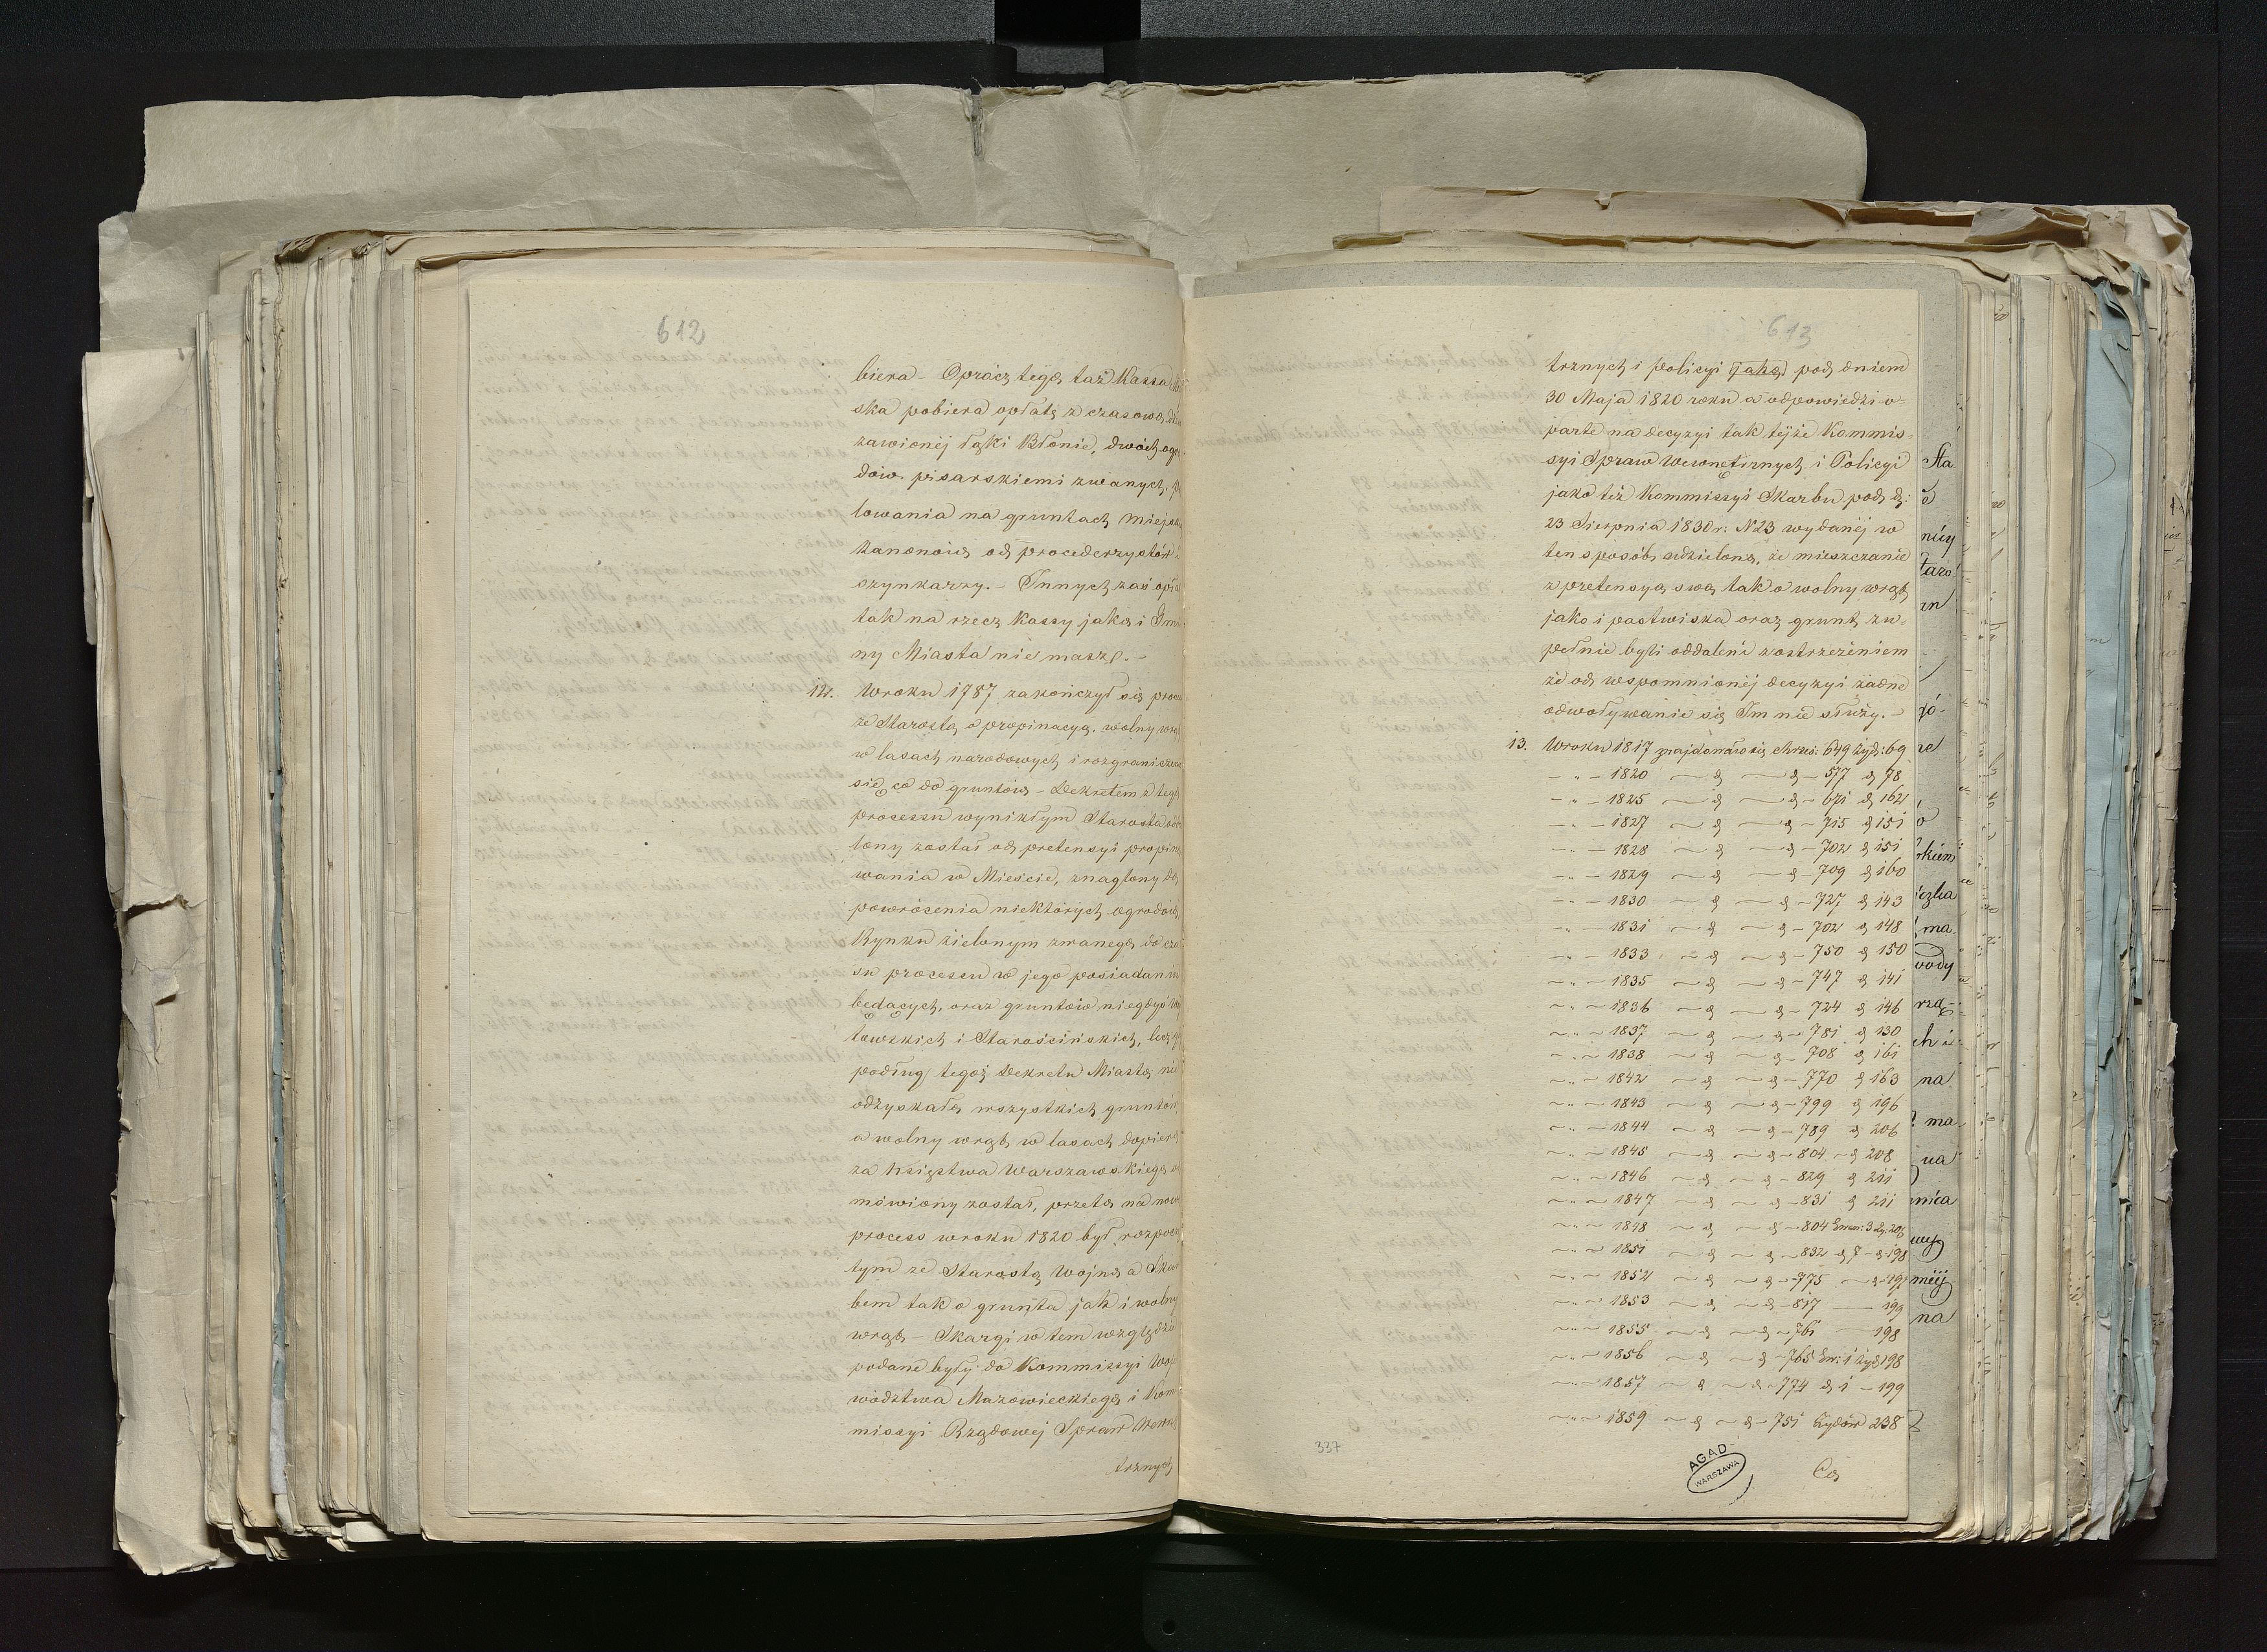 612
biera – Oprócz tego taż Kassa
ska pobiera opłatę z czasowo
zawionéj łąki Błonie, dwóch ogro
dów pisarskiemi zwanych, po
lowania na gruntach miejsk
kanonów od procederzystów i
szynkarzy. – Innych zaś opła
tak na rzecz Kassy jako i Gmi
ny Miasta nie masz. –
12. Wroku 1787 zakończył się proce
ze Starostą o propinacyą, wolny wrąb
w lasach narodowych i rozgraniczeni
się co do gruntów – Dekretem z tego
processu wynikłym Starosta odda
lony został od pretensyi propino
wania w Mieście, znaglony do
powrócenia niektórych ogrodów
Rynku zielonym zwanego do cza
su processu w jego posiadaniu
będących, oraz gruntów niegdyś Wój
towskich i Starościńskich, lecz gdy
podług tegoż Dekretu Miasto nie
odzyskało wszystkich gruntów,
a wolny wrąb w lasach dopiero
za Księstwa Warszawskiego od
mówiony został, przeto na nowo
process wroku 1820 był rozpoczę
tym ze Starostą Wojną a Skar
bem tak o grunta jak i wolny
wrąb – Skargi w tem względzie
podane były do Kommissyi Woje
wództwa Mazowieckiego i Kom
missyi Rządowej Spraw Wewnę
trznych
613
trznych i Policyi jako pod dniem
30 Maja 1820 roku a odpowiedzi o=
parte na decyzyi tak tejże Kommis=
syi Spraw Wewnętrznych i Policyi
jako też Kommissyi Skarbu pod d:
23 Sierpnia 1830 r: N 23 wydanéj w
ten sposób udzielono, że mieszczanie
z pretensyą swą tak o wolny wrąb
jako i pastwiska oraz grunt zu=
pełnie byli oddaleni zostrzeżeniem
że od wspomnionéj decyzyi żadne
odwoływanie się Im nie służy. –
13. Wroku 1817 znajdowało się chrześ: 649 żyd: 69
– " – 1820 – d – d – 577 d 78
– " – 1825 – d – d – 671 d 162
– " – 1827 – d – d – 715 d 151
– " – 1828 – d – d – 702 d 151
– " – 1829 – d – d – 709 d 160
– " – 1830 – d – d – 727 d 143
– " – 1831 – d – d – 702 d 148
– " – 1833 – d – d – 750 d 150
– " – 1835 – d – d – 747 d 141
– " – 1836 – d – d – 724 d 146
– " – 1837 – d – d – 781 d 130
– " – 1838 – d – d – 708 d 161
– " – 1842 – d – d – 770 d 163
– " – 1843 – d – d – 799 d 196
– " – 1844 – d – d – 789 d 206
– " – 1845 – d – d – 804 – d 208
– " – 1846 – d – d – 829 d 211
– " – 1847 – d – d – 831 d 211
– " – 1848 – d – d – 804 Ewan: 3 Ży: 204
– " – 1851 – d – d – 832 d 7 – d 198
– " – 1852 – d – d – 775 – d – 197
– " – 1853 – d – d – 817 – 199
– " – 1855 – d – d – 761 – 198
– " – 1856 – d – d – 765 Ew: 1 żyd 198
– " – 1857 – d – d – 774 d 1 – 199
– " – 1859 – d – d – 751 Żydów 238
Co
337
AGAD
WARSZAWA
Sta
nicy
re
rkiem
iczba
ma
wody
rzą
ch i
na
ma
nica
wej
na